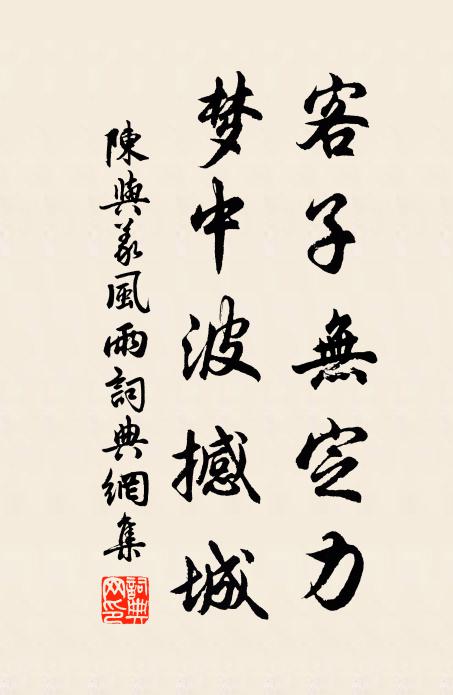 客子無定力
梦中波撼城
陳與義風雨詞典網集
詞典网印